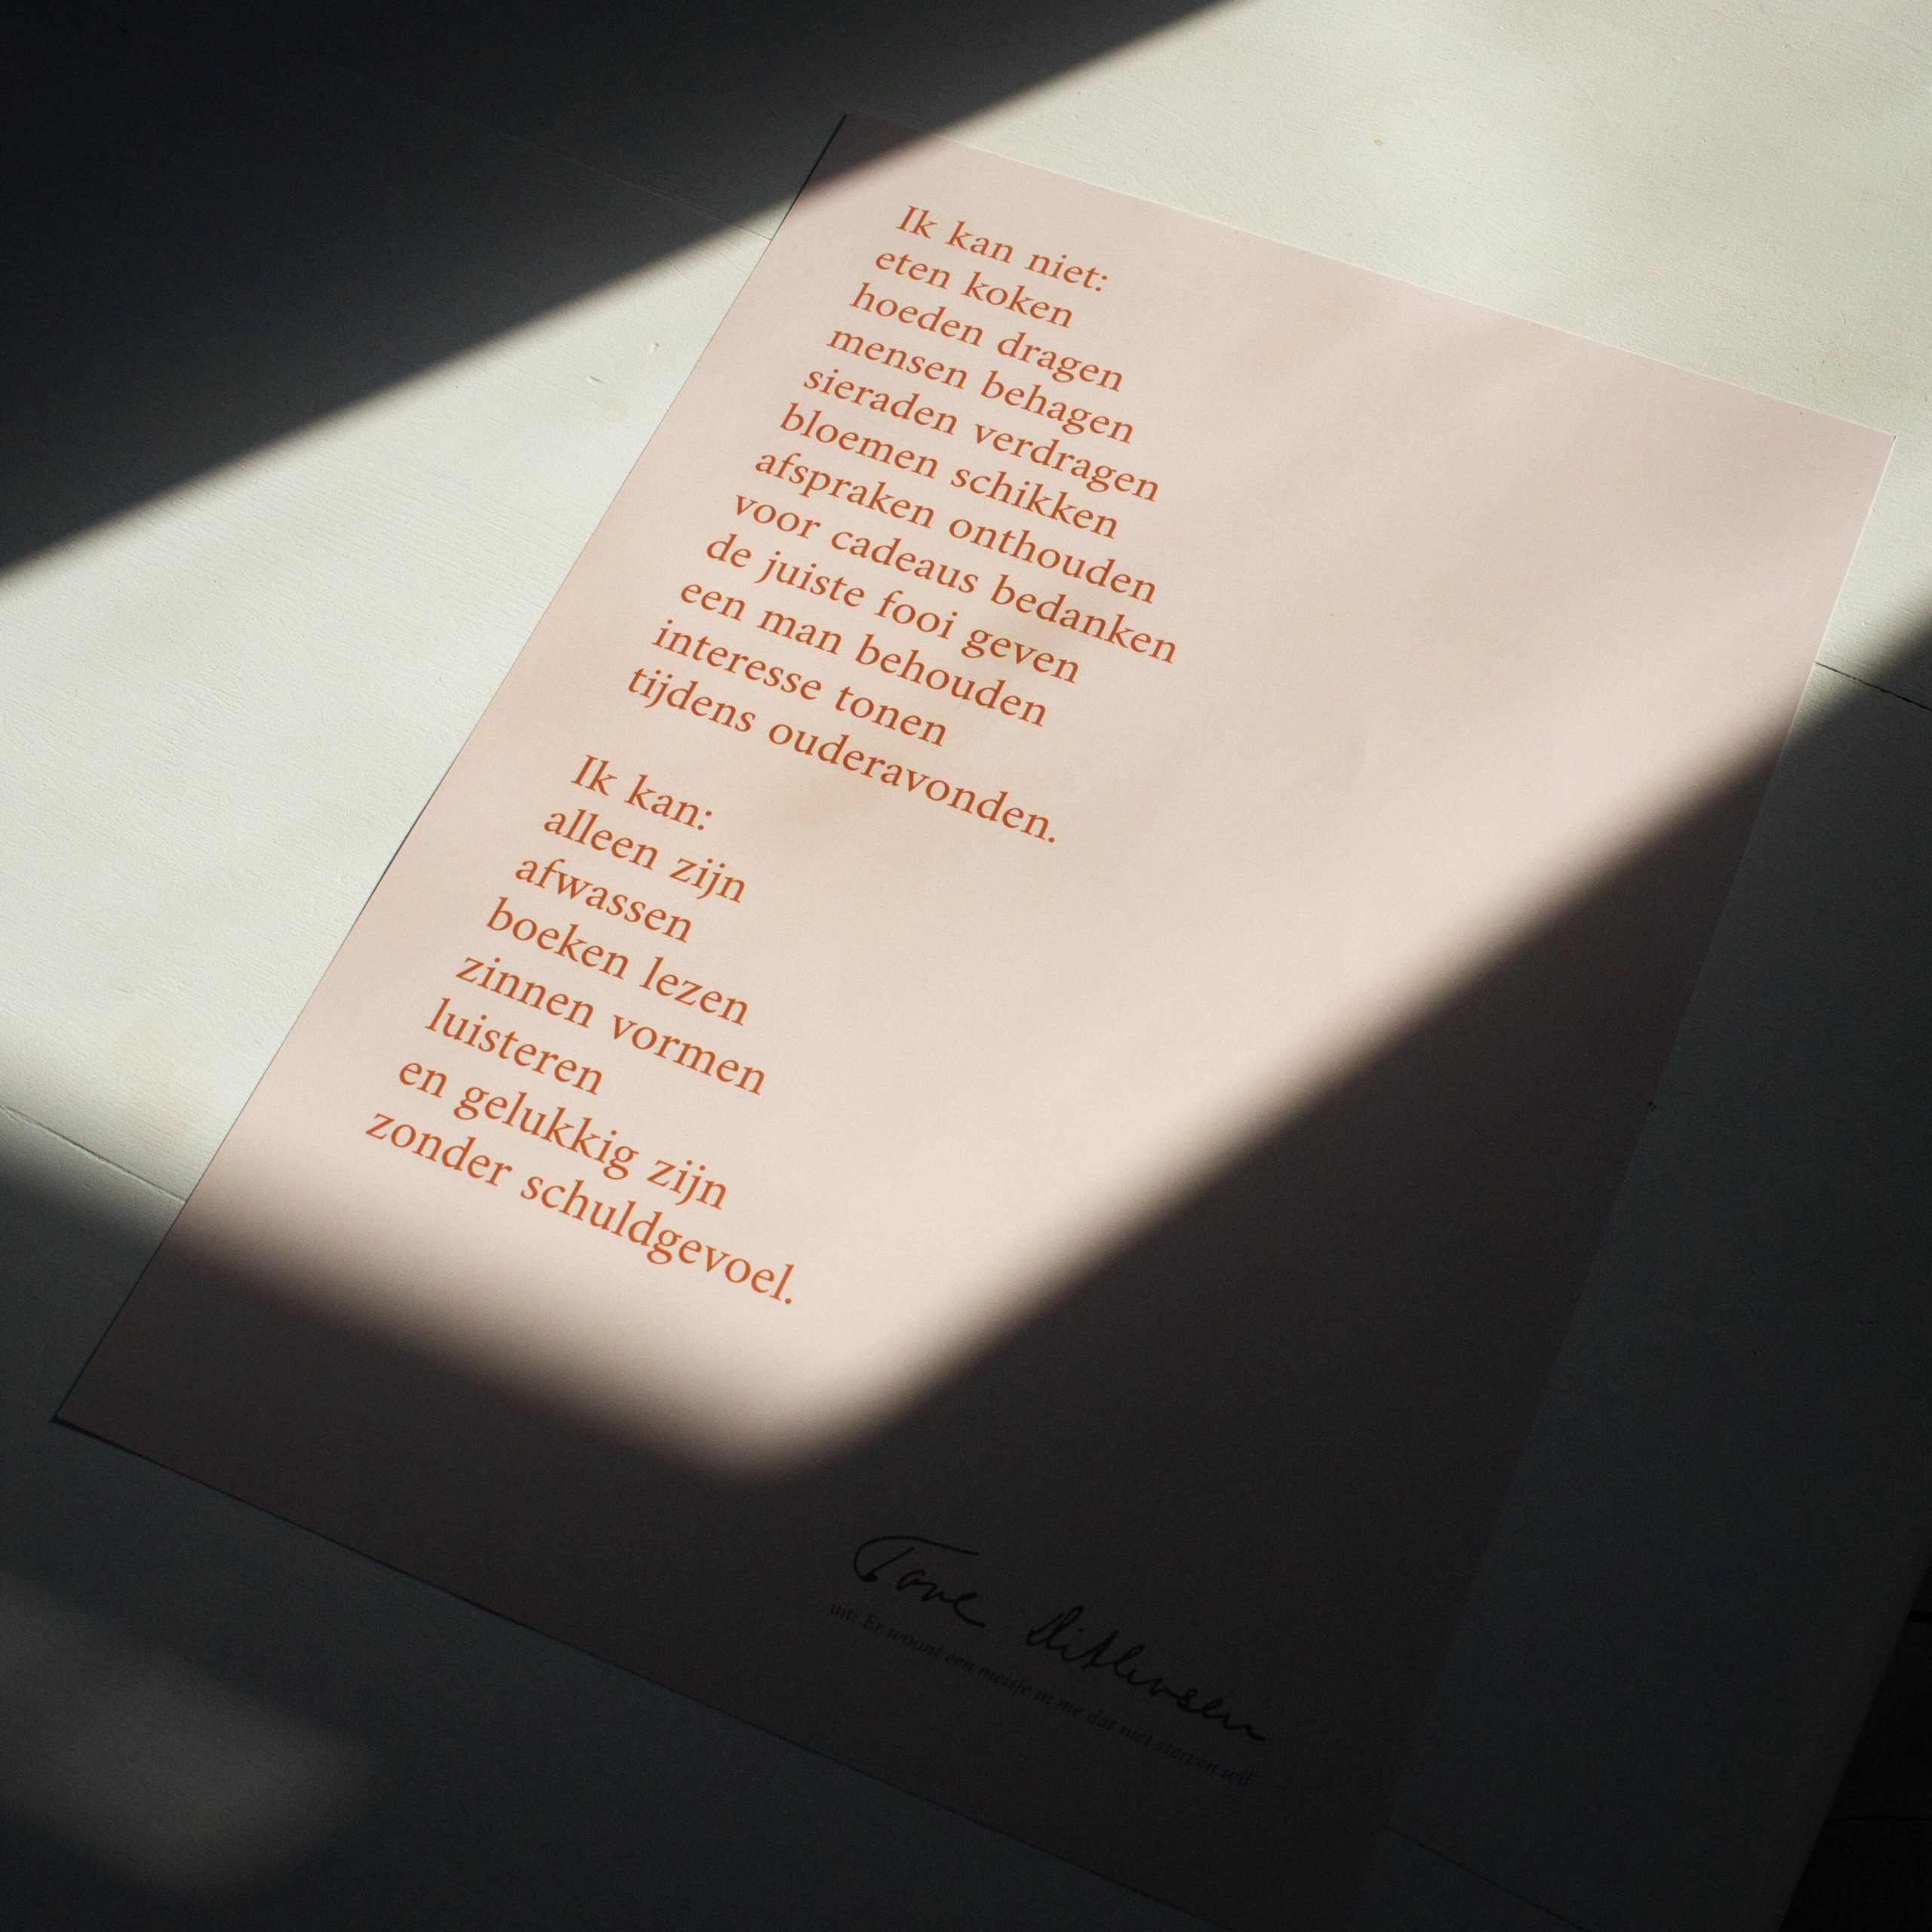 Ik kan niet:
eten koken
hoeden dragen
mensen behagen
sieraden verdragen
bloemen schikken
afspraken onthouden
voor cadeaus bedanken
de juiste fooi geven
een man behouden
interesse tonen
tijdens ouderavonden.
Ik kan:
alleen zijn
afwassen
boeken lezen
zinnen vormen
luisteren
en gelukkig zijn
zonder schuldgevoel.
Tove Ditlevsen
uit: Er woont een meisje in me dat niet sterven wil